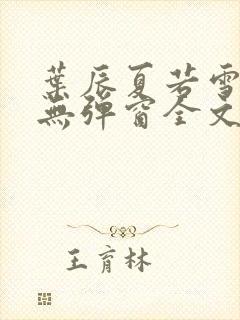 葉辰夏若雪
無彈窗全文
王育林